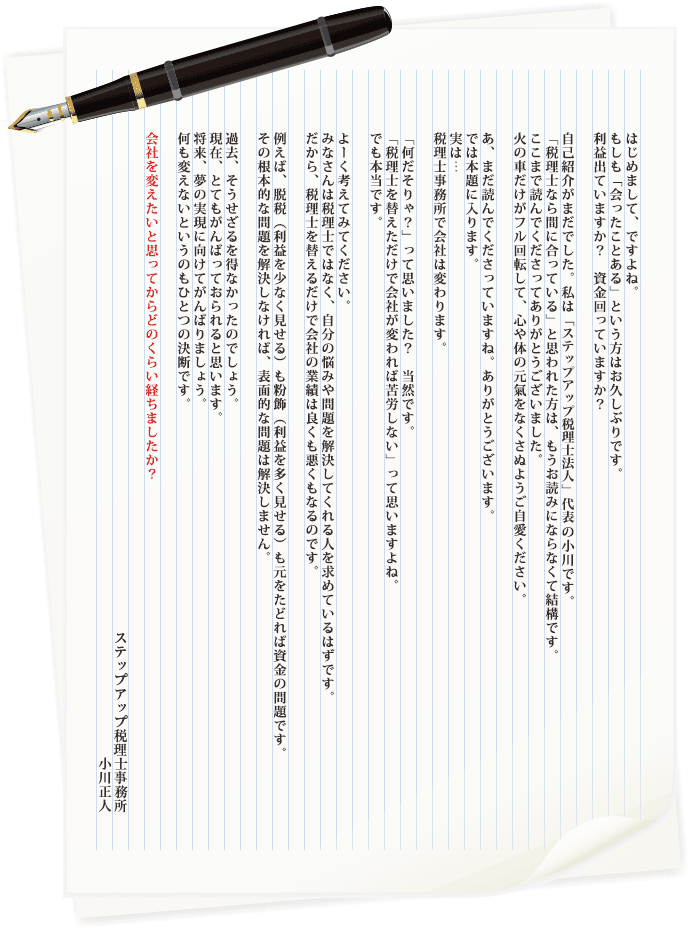 はじめまして、ですよね。
もしも「会ったことある」という方はお久しぶりです。
利益出ていますか？　資金回っていますか？
自己紹介がまだでした。私は「ステップアップ税理士法人」代表の小川です。
「税理士なら間に合っている」と思われた方は、もうお読みにならなくて結構です。
ここまで読んでくださってありがとうございました。
火の車だけがフル回転して、心や体の元氣をなくさぬようご自愛ください。
あ、まだ読んでくださっていますね。ありがとうございます。
では本題に入ります。
実は…
税理士事務所で会社は変わります。
「何だそりゃ？」って思いました？　当然です。
「税理士を替えただけで会社が変われば苦労しない」って思いますよね。
でも本当です。
よーく考えてみてください。
みなさんは税理士ではなく、自分の悩みや問題を解決してくれる人を求めているはずです。
だから、税理士を替えるだけで会社の業績は良くも悪くもなるのです。
例えば、脱税（利益を少なく見せる）も粉飾（利益を多く見せる）も元をたどれば資金の問題です。
その根本的な問題を解決しなければ、表面的な問題は解決しません。
過去、そうせざるを得なかったのでしょう。
現在、とてもがんばっておられると思います。
将来、夢の実現に向けてがんばりましょう。
何も変えないというのもひとつの決断です。
会社を変えたいと思ってからどのくらい経ちましたか？
ステップアップ税理士事務所
小川正人